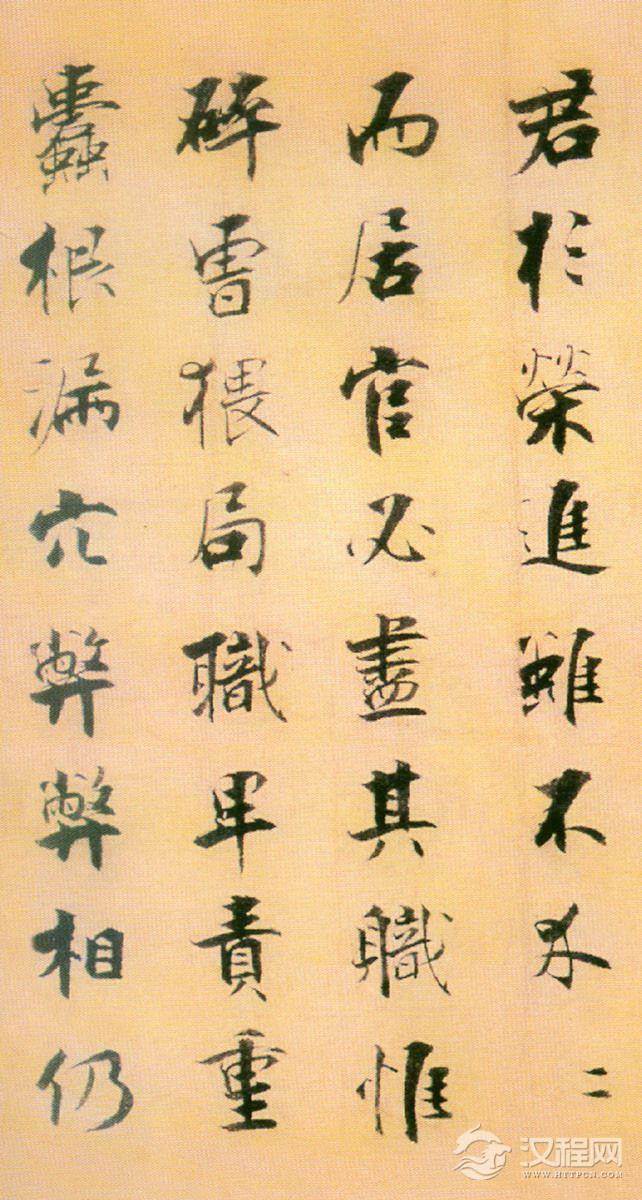 君於榮進雖不〻
而居官必盡其職惟
碎曹猥局職卑責重
蠹根漏穴弊弊相仍
汉程网
WWW.HTTPCN.COM